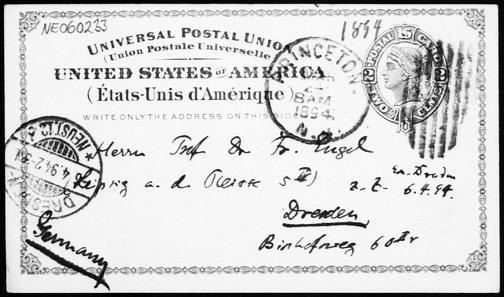 NE060233
1894
UNIVERSAL POSTAL UNION
(Union Postale Universelle)
UNITED STATES OF AMERICA
(États-Unis d'Amérique)
WRITE ONLY THE ADDRESS ON THIS SIDE
PRINCETON
8 AM
1894
N.J.
POSTAL CARD
U.S.
TWO CENTS
DRESDEN
4.94.2-3N
Herrn Prof Dr Fr. Engel
Leipzig a. d.
z. Z.
6.4.94.
Dresden
60
Germany